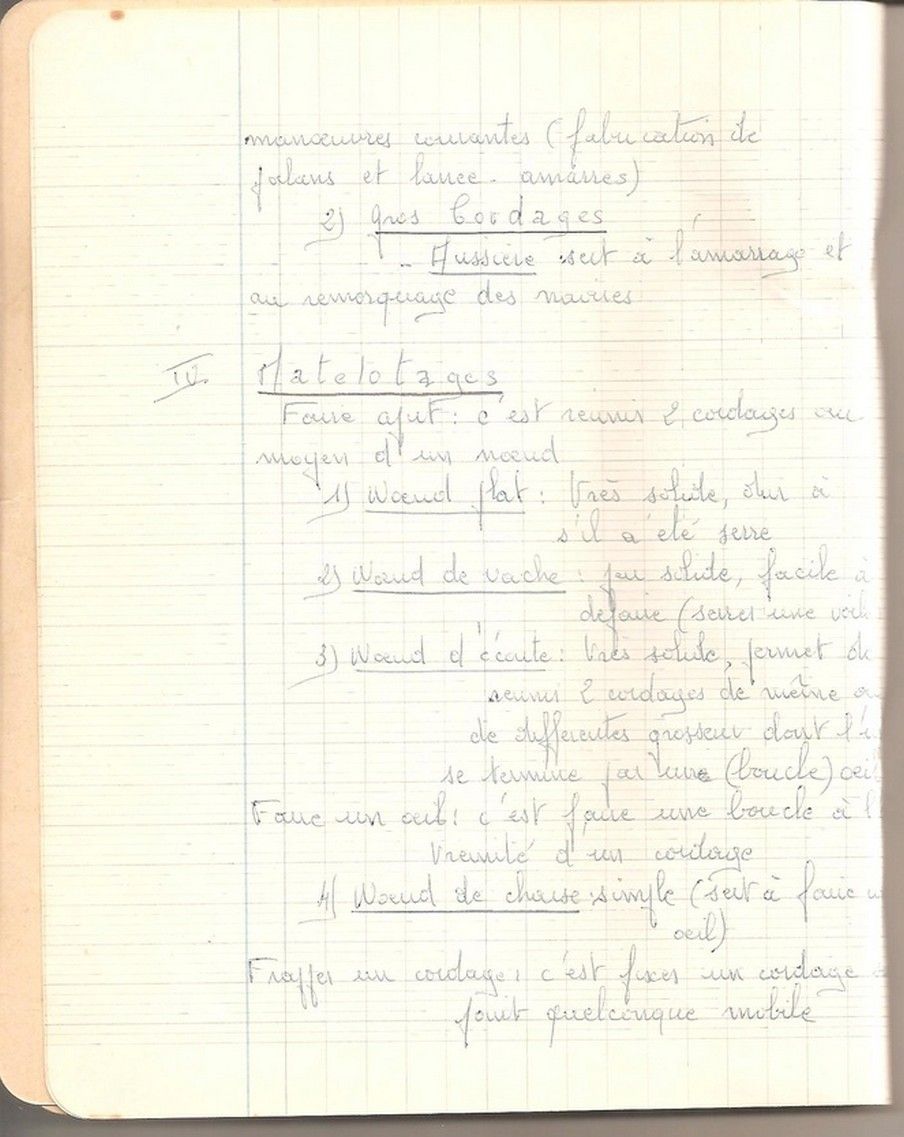 manœuvres courantes (fabrication de
palans et lance-amarres)
2) Gros Cordages
- Aussière sert à l'amarrage et
au remorquage des navires
IV. Matelotages
Faire ajut : c'est reunir 2 cordages au
moyen d'un nœud
1) Nœud plat : Très solide, dur à
s'il a été serre
2) Nœud de vache : peu solide, facile à
defaire (serrer une voil
3) Nœud d'écoute : Très solide, permet de
reunir 2 cordages de même ou
de differentes grosseur dont l'
se termine par une (boucle) oeil
Faire un œil : c'est faire une boucle à l'
tremité d'un cordage
4) Nœud de chaise simple (sert à faire
oeil)
Frapper un cordage : c'est fixer un cordage
point quelconque mobile